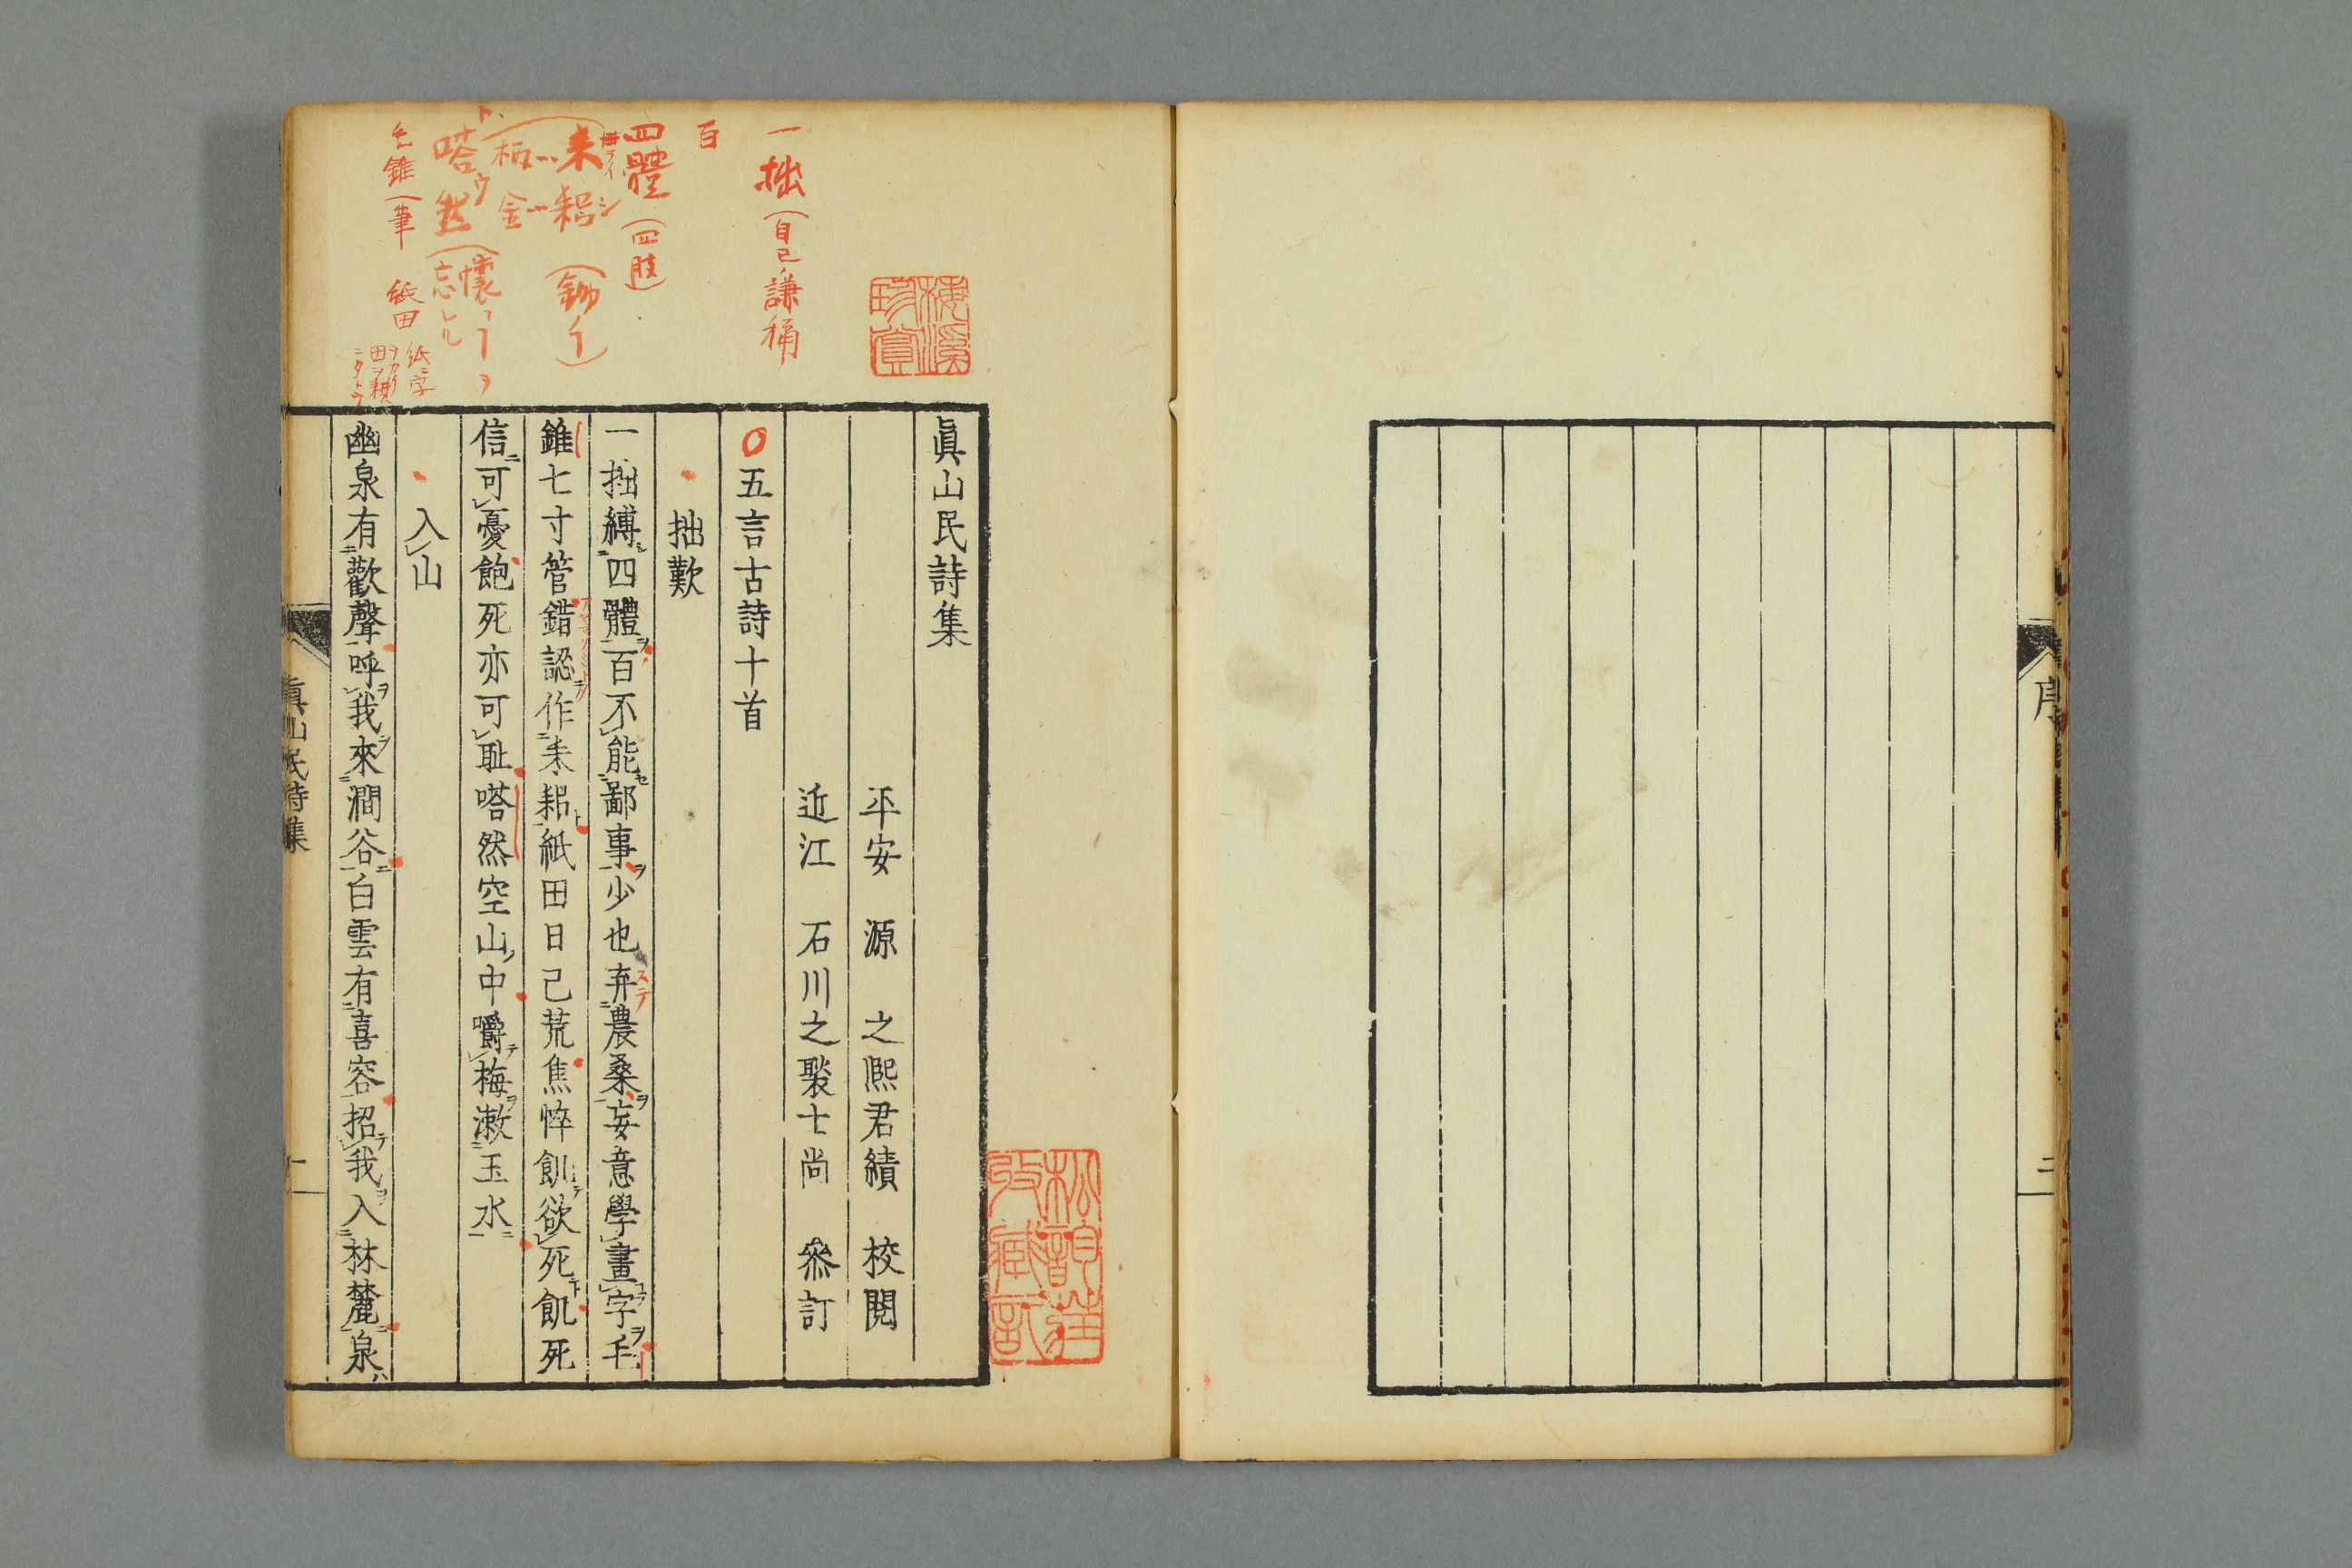 序
三
眞山民詩集
平安 源 之熙君績 校閲
近江 石川之褧士尚 叅訂
五言古詩十首
拙歎
一拙縛四體百不能鄙事少也弃農桑妄意學畫字毛
錐七寸管錯認作耒耜紙田日己荒焦悴飢欲死飢死
信可憂飽死亦可恥嗒然空山中嚼梅漱玉水
入山
幽泉有歡聲呼我來澗谷白雲有喜容招我入林麓泉
眞山民詩集
一
一拙(自己謙稱
百
四體(四肢)
耒…柄
耜…金
嗒然
毛錐―筆 紙田